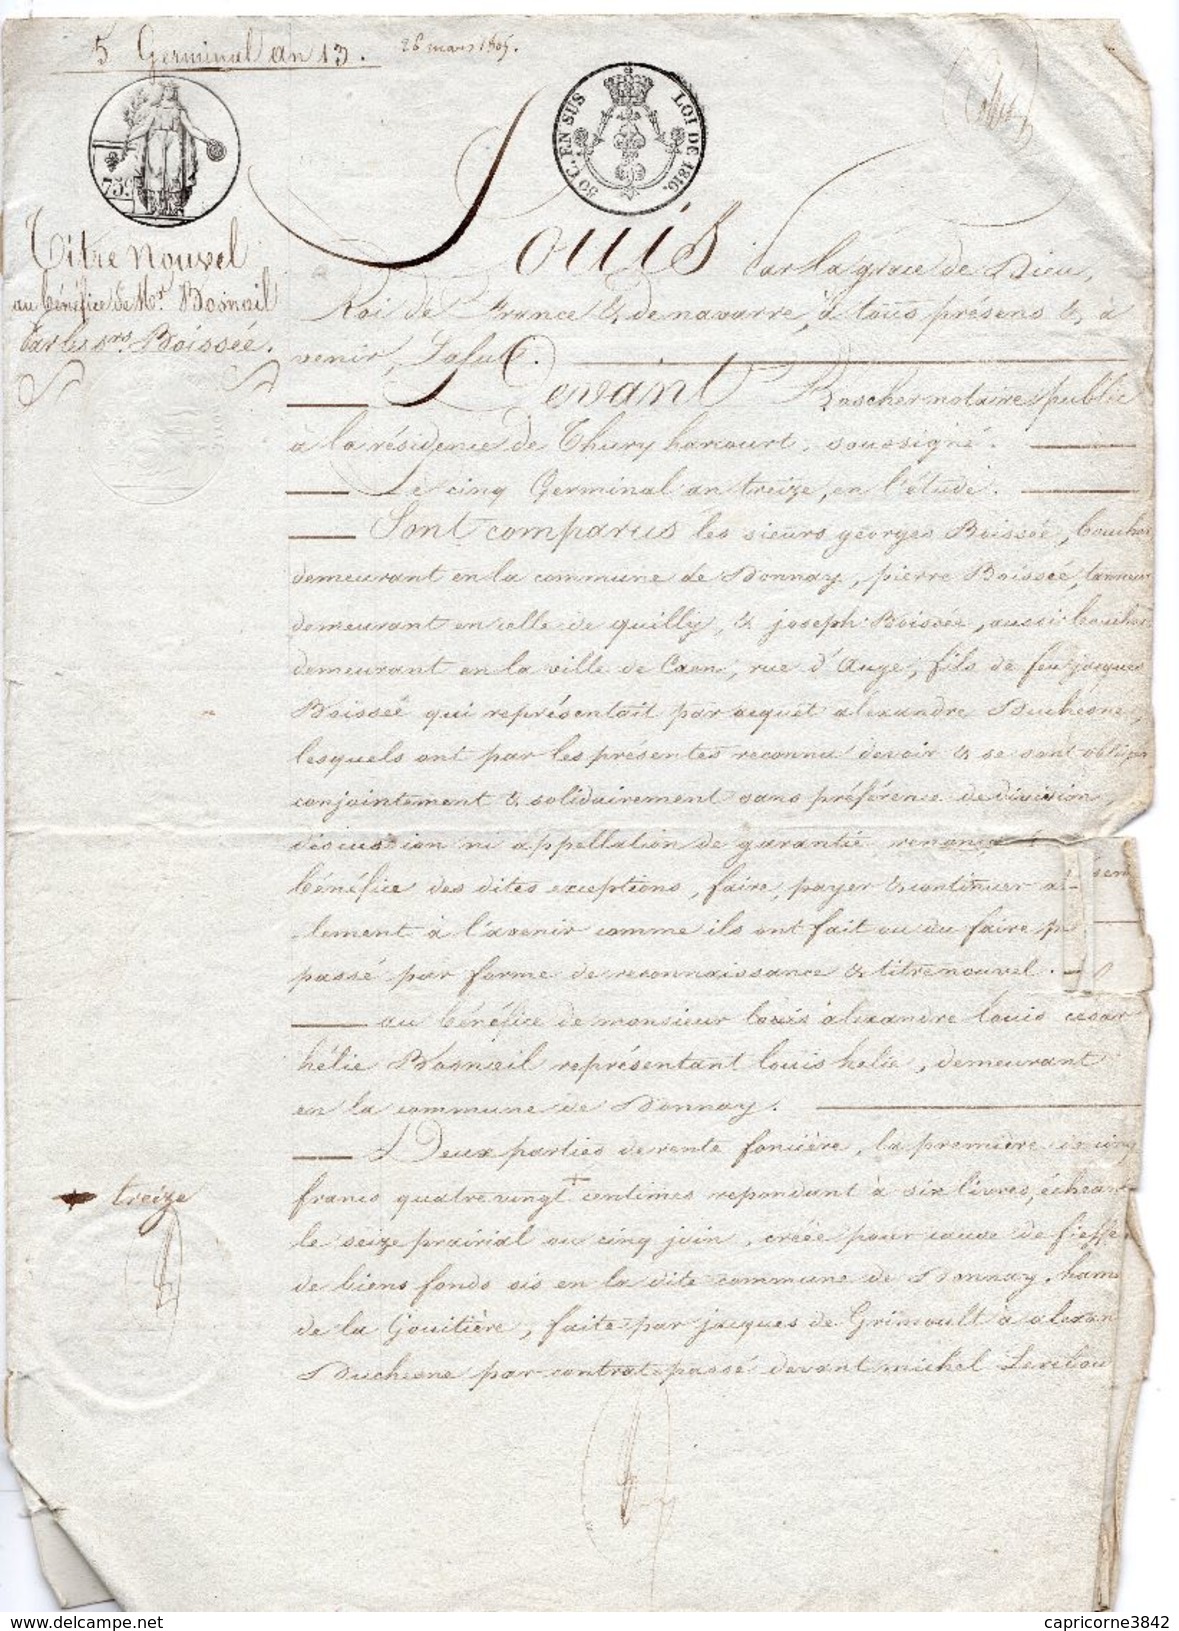 5 Germinal an 13.
26 mars 1805.
75c
50 C. EN SUS
LOI DE 1816.
Titre Nouvel
au bénéfice de Mr. Bosneil
Par les srs. Boissée.
Louis par la grace de Dieu,
Roi de France & de navarre, à tous présens & à
venir, Salut.
Devant Bascher notaire public
à la résidence de Thury harcourt, soussigné.
Le cinq Germinal an treize, en l'étude.
Sont comparus les sieurs georges Boissée, boucher
demeurant en la commune de Donnay, pierre Boissée, tanneur
demeurant en celle de quilly, & joseph Boissée, aussi boucher
demeurant en la ville de Caen, rue d'Auge, fils de feu jacques
Boissée qui représentait par acquet alexandre Duchesne,
lesquels ont par les présentes reconnu devoir & se sont obligés
conjointement & solidairement sans préférence de division,
discussion ni appellation de garantie renonçant
bénéfice des dites exceptions, faire, payer & continuer
-lement à l'avenir comme ils ont fait ou du faire
passé par forme de reconnaissance & titre nouvel.
au bénéfice de monsieur louis alexandre louis cesar
hélie Bosneil représentant louis helie, demeurant
en la commune de Donnay.
Deux parties de rente foncière, la première de cinq
francs quatre vingt + centimes repondant à six livres, échéant
+ treize
le seize prairial ou cinq juin, créée pour cause de fieffe
de biens fonds sis en la dite commune de Donnay, ham
de la Gouitière, faite par jacques de Grimoult à alexan
Duchesne par contrat passé devant michel Lerebou
capricorne3842